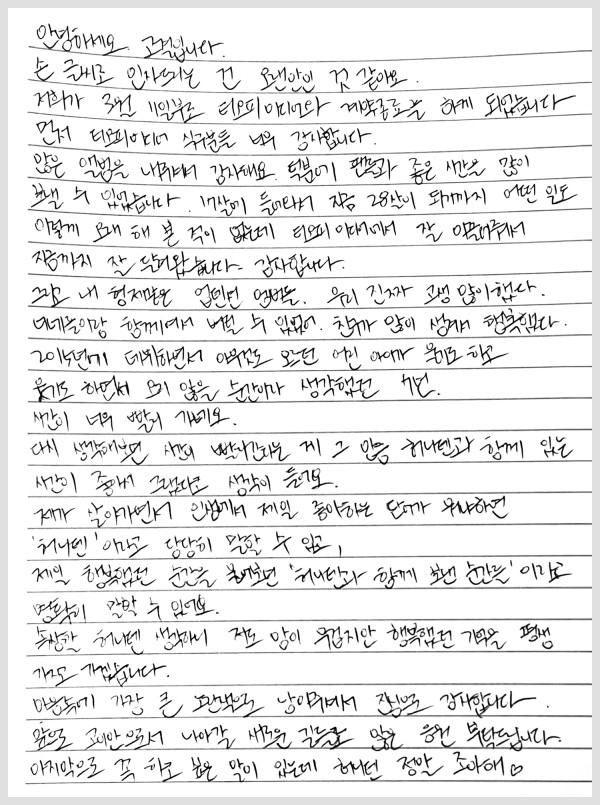 안녕하세요. 고결입니다.
손 글씨로 인사드리는 건 오랜만인 것 같아요.
저희가 3월 11일부로 티오피미디어와 계약종료를 하게 되었습니다
먼저 티오피미디어 식구분들 너무 감사합니다.
많은 앨범을 내주셔서 감사해요. 덕분에 팬들과 좋은 시간을 많이
보낼 수 있었습니다. 17살에 들어와서 지금 28살이 되기까지 어떤 일도
이렇게 오래 해 본 적이 없는데 티오피미디어에서 잘 이끌어주셔서
지금까지 잘 달려왔습니다. 감사합니다.
그리고 내 형제같은 업텐션 멤버들. 우리 진짜 고생 많이했다.
너네들이랑 함께여서 버틸 수 있었어. 추억 많이 생겨서 행복했다.
2015년에 데뷔하면서 아무것도 모르던 어린 아이가 울기도 하고
웃기도 하면서 오지 않을 순간이라 생각했던 7년.
시간이 너무 빨리 가네요.
다시 생각해보면 시간이 빨리간다는 게 그 만큼 허니텐과 함께 있는
시간이 좋아서 그랬다고 생각이 들어요.
제가 살아가면서 인생에서 제일 좋아하는 단어가 뭐냐하면
'허니텐'이라고 당당히 말할 수 있고,
제일 행복했던 순간을 물어보면 '허니텐과 함께 보낸 순간들'이라고
명확히 말할 수 있어요.
속상할 허니텐 생각하니 저도 맘이 무겁지만 행복했던 기억을 평생
가지고 가겠습니다.
마음속에 가장 큰 조각으로 남아줘서 진심으로 감사합니다.
앞으로 고민안으로서 나아갈 새로운 길들도 많은 응원 부탁드립니다.
마지막으로 꼭 하고 싶은 말이 있는데 허니텐 정말 조아해♡